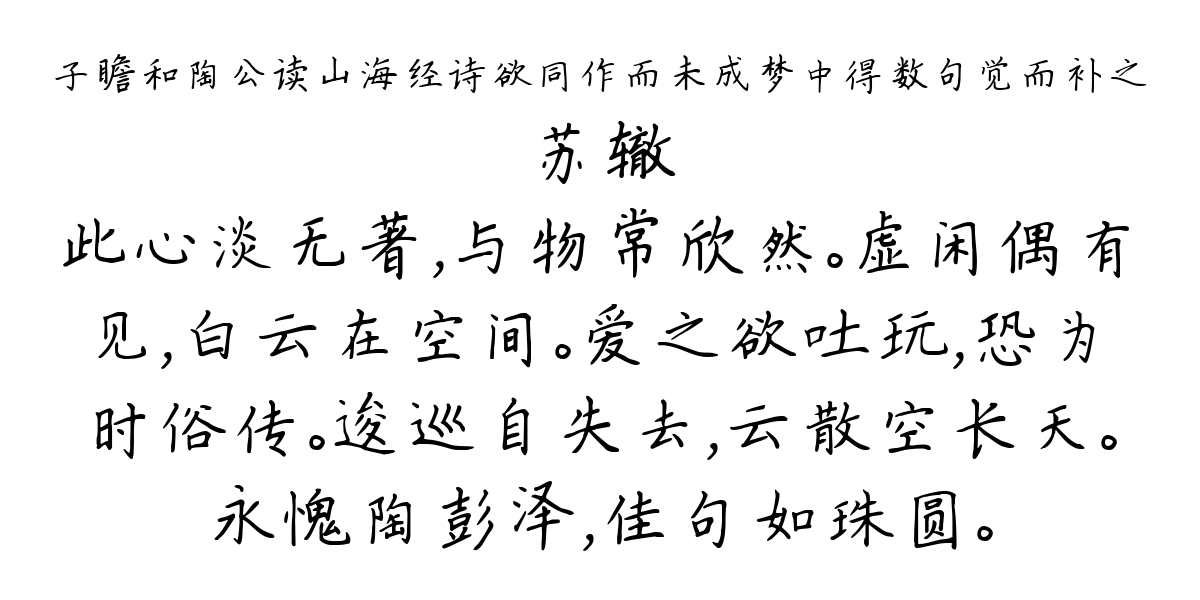 子瞻和陶公读山海经诗欲同作而未成梦中得数句觉而补之
苏辙
此心淡无著,与物常欣然。虚闲偶有
见,白云在空间。爱之欲吐玩,恐为
时俗传。逡巡自失去,云散空长天。
永愧陶彭泽,佳句如珠圆。